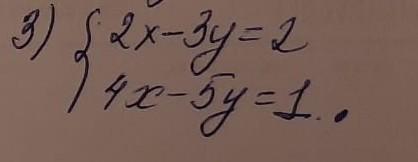 3) { 2x-3y=2
4x-5y=1.